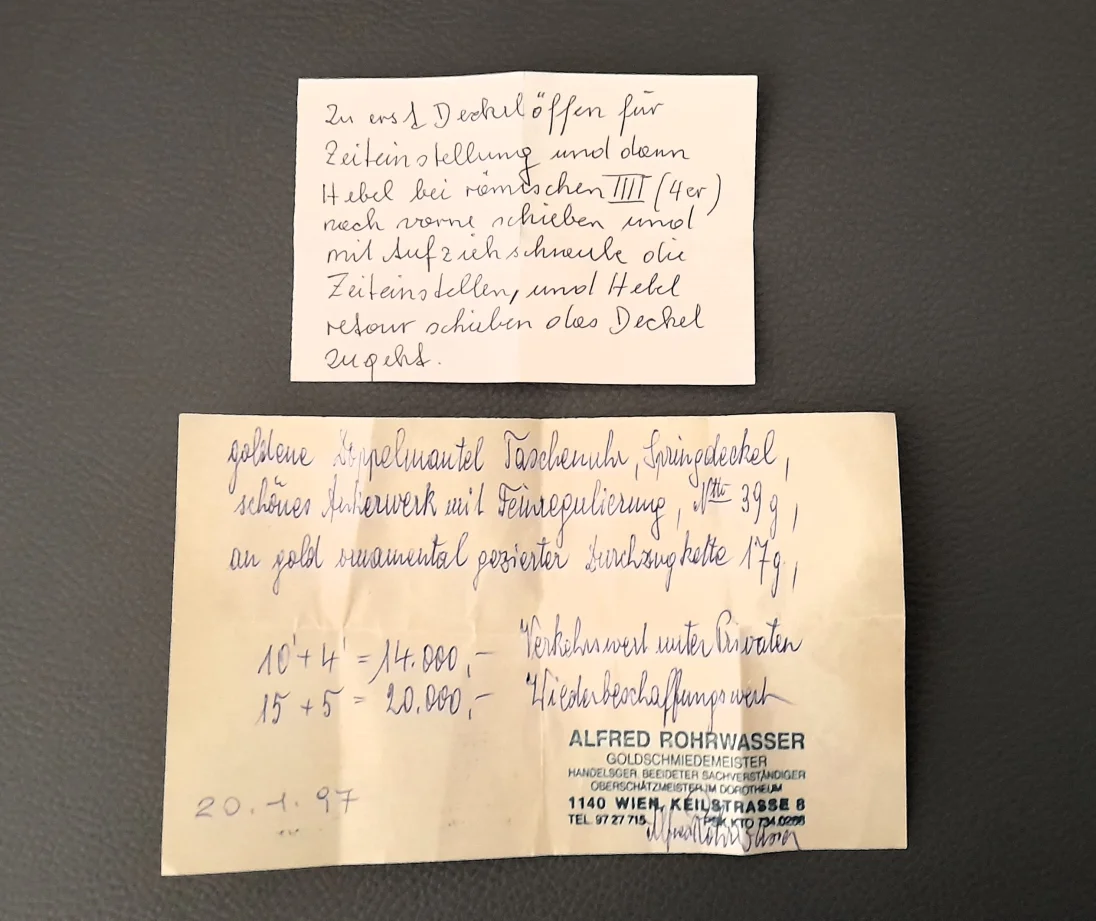 Zu erst Deckel öffen für
Zeiteinstellung und dann
Hebel bei römischen IIII (4er)
nach vorne schieben und
mit Aufziehschraube die
Zeiteinstellen, und Hebel
retour schieben das Deckel
zugeht.
goldene Doppelmantel Taschenuhr, Springdeckel,
schönes Ankerwerk mit Feinregulierung, Ntto 39g,
an gold ornamental gezierter Durchzugkette 17g,
10' + 4' = 14.000,- Verkehrswert unter Privaten
15 + 5 = 20.000,- Wiederbeschaffungswert
ALFRED ROHRWASSER
GOLDSCHMIEDEMEISTER
HANDELSGER. BEEIDETER SACHVERSTÄNDIGER
OBERSCHÄTZMEISTER IM DOROTHEUM
1140 WIEN, KEILSTRASSE 8
TEL. 97 27 715 PSK KTO 734.0266
Alfred Rohrwasser
20.1.97